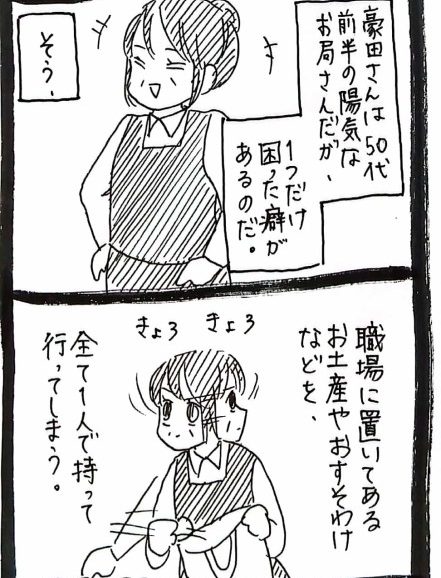 豪田さんは50代
前半の陽気な
お局さんだが、
1つだけ
困った癖が
あるのだ。
そう、
職場に置いてある
お土産やおすそわけ
などを、
きょろ きょろ
全て1人で持って
行ってしまう。